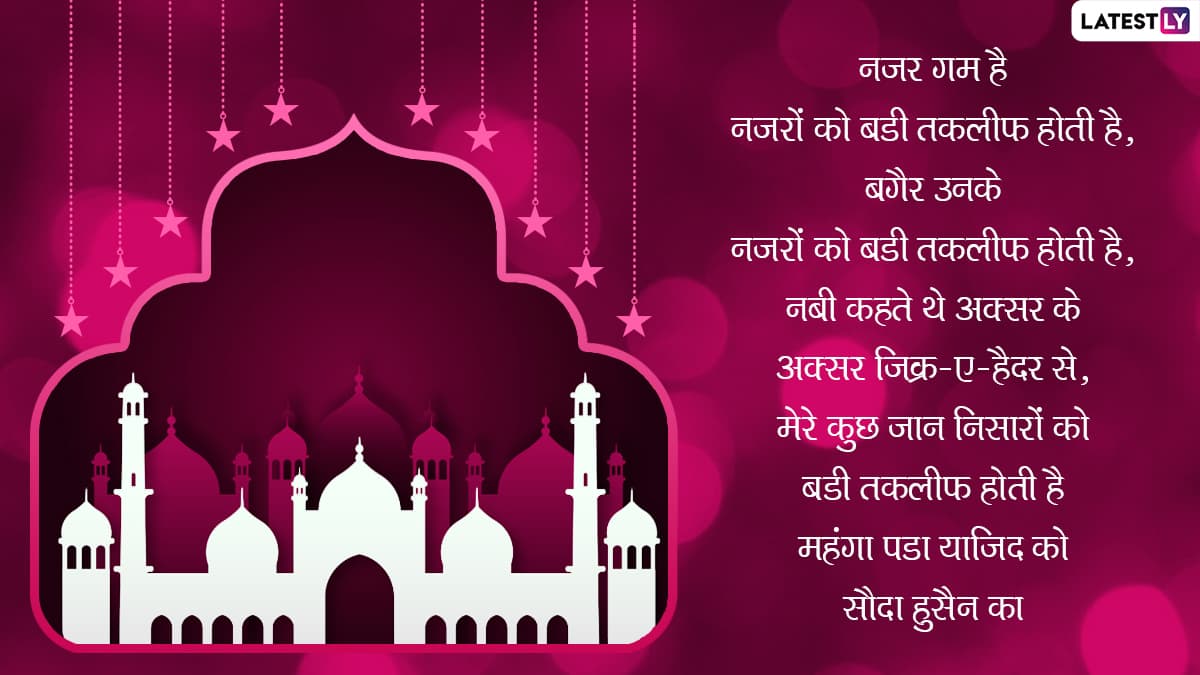 LATESTLY
नजर गम है
नजरों को बडी तकलीफ होती है,
बगैर उनके
नजरों को बडी तकलीफ होती है,
नबी कहते थे अक्सर के
अक्सर जिक्र-ए-हैदर से,
मेरे कुछ जान निसारों को
बडी तकलीफ होती है
महंगा पडा याजिद को
सौदा हुसैन का